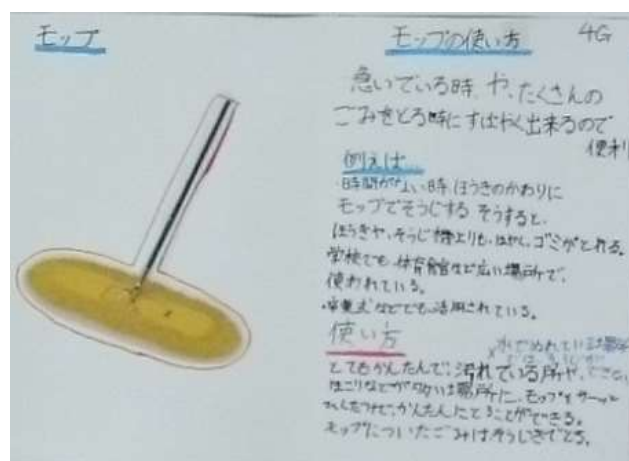 モップ
モップの使い方
4G
急いでいる時や、たくさんの
ごみをとる時にすばやく出来るので
便利
例えば
・時間がない時、ほうきのかわりに
モップでそうじする そうすると、
ほうきや、そうじ機よりも、はやく、ゴミがとれる。
学校でも、体育館など広い場所で、
使われている。
・卒業式などでも、活用されている。
使い方
×水でぬれている場所
できない
とてもかんたんで、汚れている所や、
ほこりなどが 場所に、モップを
かんたんにとることができる。
モップについたごみはそうじきでとる。